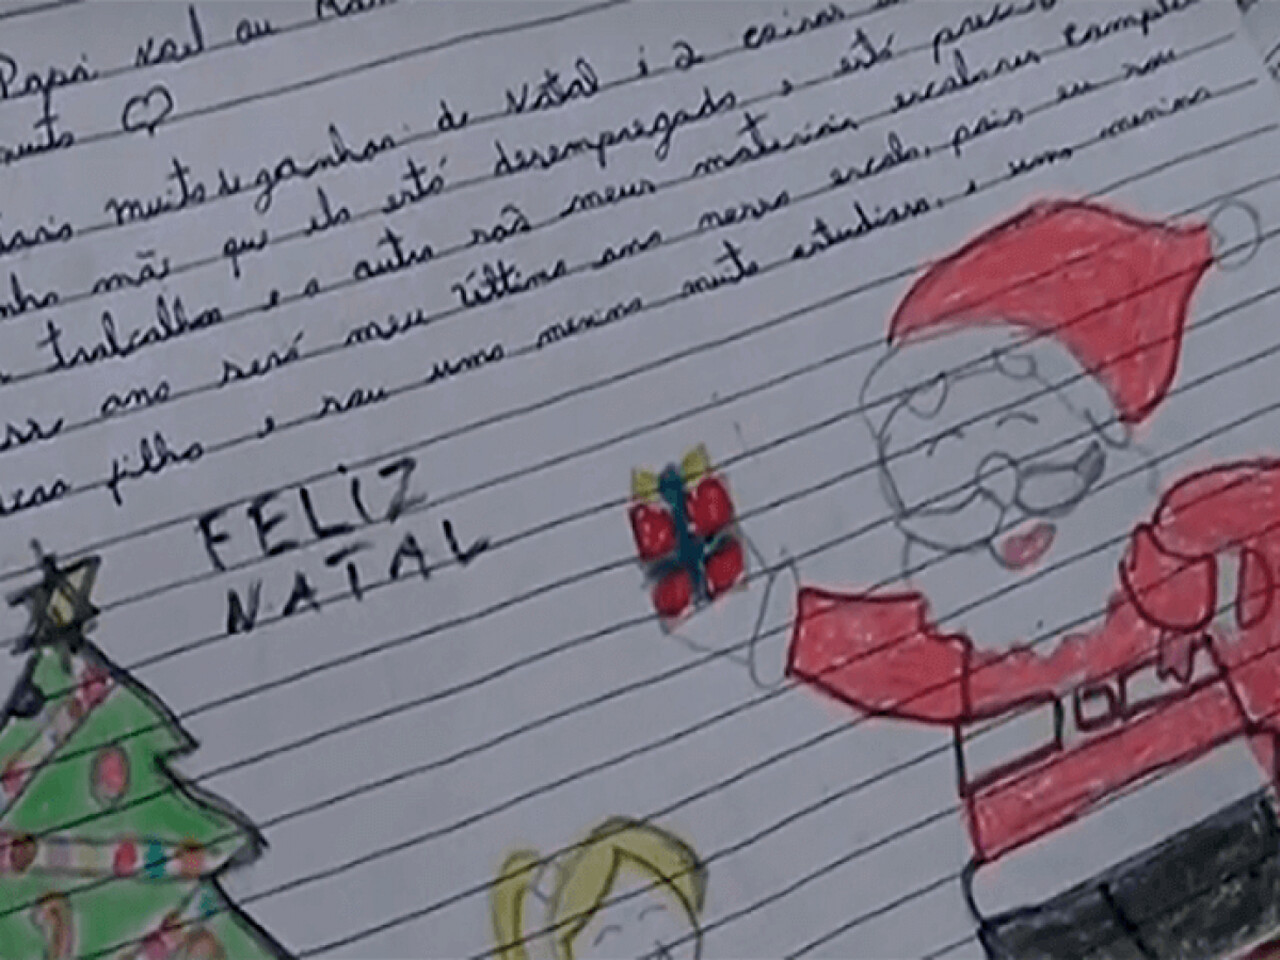 Papai Noel ou Mam
muito
muito de ganhar de Natal é 2 coisas
mãe que ela está desempregada e está precis
trabalho e a outra são meus materiais escolares complet
ano será meu último ano nessa escola, pois eu sou
filha e sou uma menina muito estudiosa, e uma menina
FELIZ
NATAL